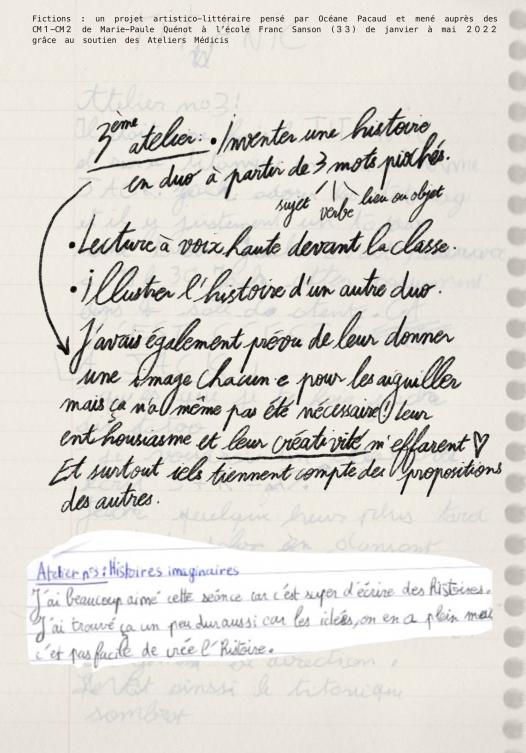 Fictions : un projet artistico-littéraire pensé par Océane Pacaud et mené auprès des
CM1-CM2 de Marie-Paule Quénot à l'école Franc Sanson (33) de janvier à mai 2022
grâce au soutien des Ateliers Médicis
Atelier no3!
3ème atelier: • Inventer une histoire
en duo à partir de 3 mots piochés.
sujet verbe lieu ou objet
• Lecture à voix haute devant la classe.
• Illustrer l'histoire d'un autre duo.
J'avais également prévu de leur donner
une image chacun·e pour les aiguiller
mais ça n'a même pas été nécessaire! leur
enthousiasme et leur créativité m'effarent ♡
Et surtout iels tiennent compte des propositions
des autres.
quelque heures plus tard
Atelier n°3 : Histoires imaginaires
J'ai beaucoup aimé cette séance car c'est super d'écrire des histoires.
J'ai trouvé ça un peu dur aussi car les idées, on en a plein mais
c'et pas facile de crée l'histoire.
direction.
ainssi le titanique
sombrer